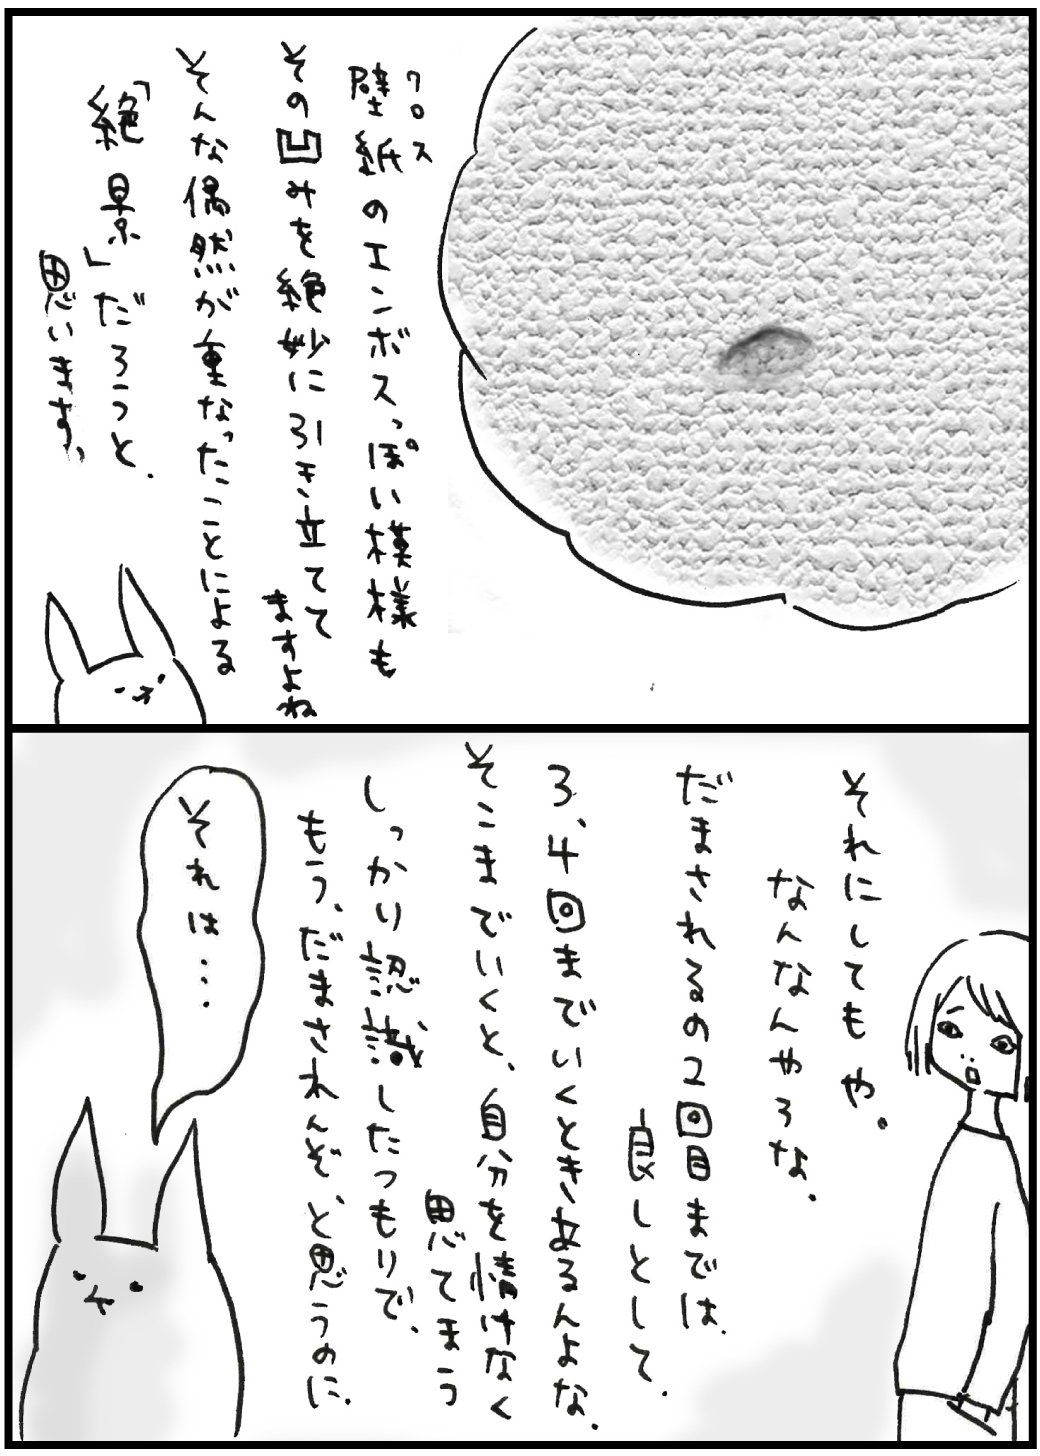 壁紙のエンボスっぽい模様も
クロス
その凹みを絶妙に引き立てて
ますよね
そんな偶然が重なったことによる
「絶景」だろうと、
思います。
それにしてもや。
なんなんやろな、
だまされるの2回目までは、
良しとして、
3、4回まででいくときあるんよな、
そこまでいくと、自分を情けなく
思てまう
しっかり認識したつもりで、
もう、だまされんぞ、と思うのに、
それは…